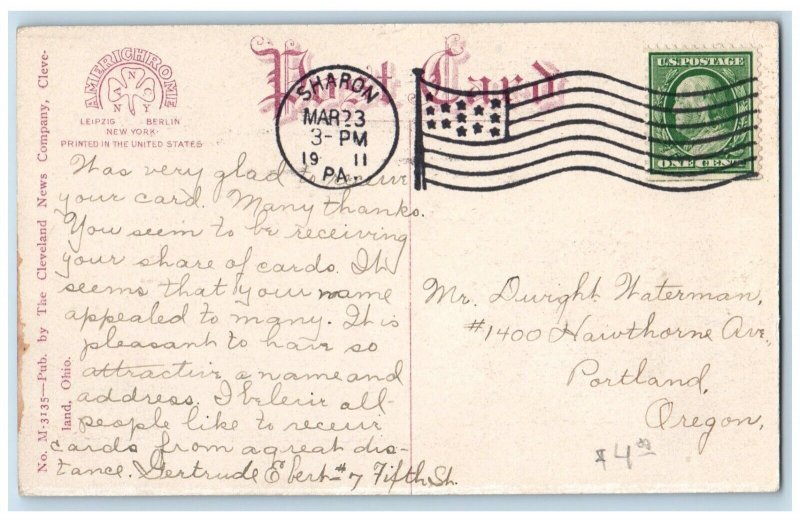 No. M-3135—Pub. by The Cleveland News Company, Cleve-
land, Ohio.
AMERICHROME
A N C N Y
LEIPZIG BERLIN
NEW YORK
PRINTED IN THE UNITED STATES
Post Card
SHARON
MAR 23
3-PM
19 11
PA.
U.S. POSTAGE
ONE CENT
Was very glad to receive
your card. Many thanks.
You seem to be receiving
your share of cards. It
seems that your name
appealed to many. It is
pleasant to have so
attractive a name and
address. I believe all
people like to receive
cards from a great dis-
tance. Gertrude Ebert #7 Fifth St.
Mr. Dwight Waterman,
#1400 Hawthorne Ave,
Portland,
Oregon,
$4.00